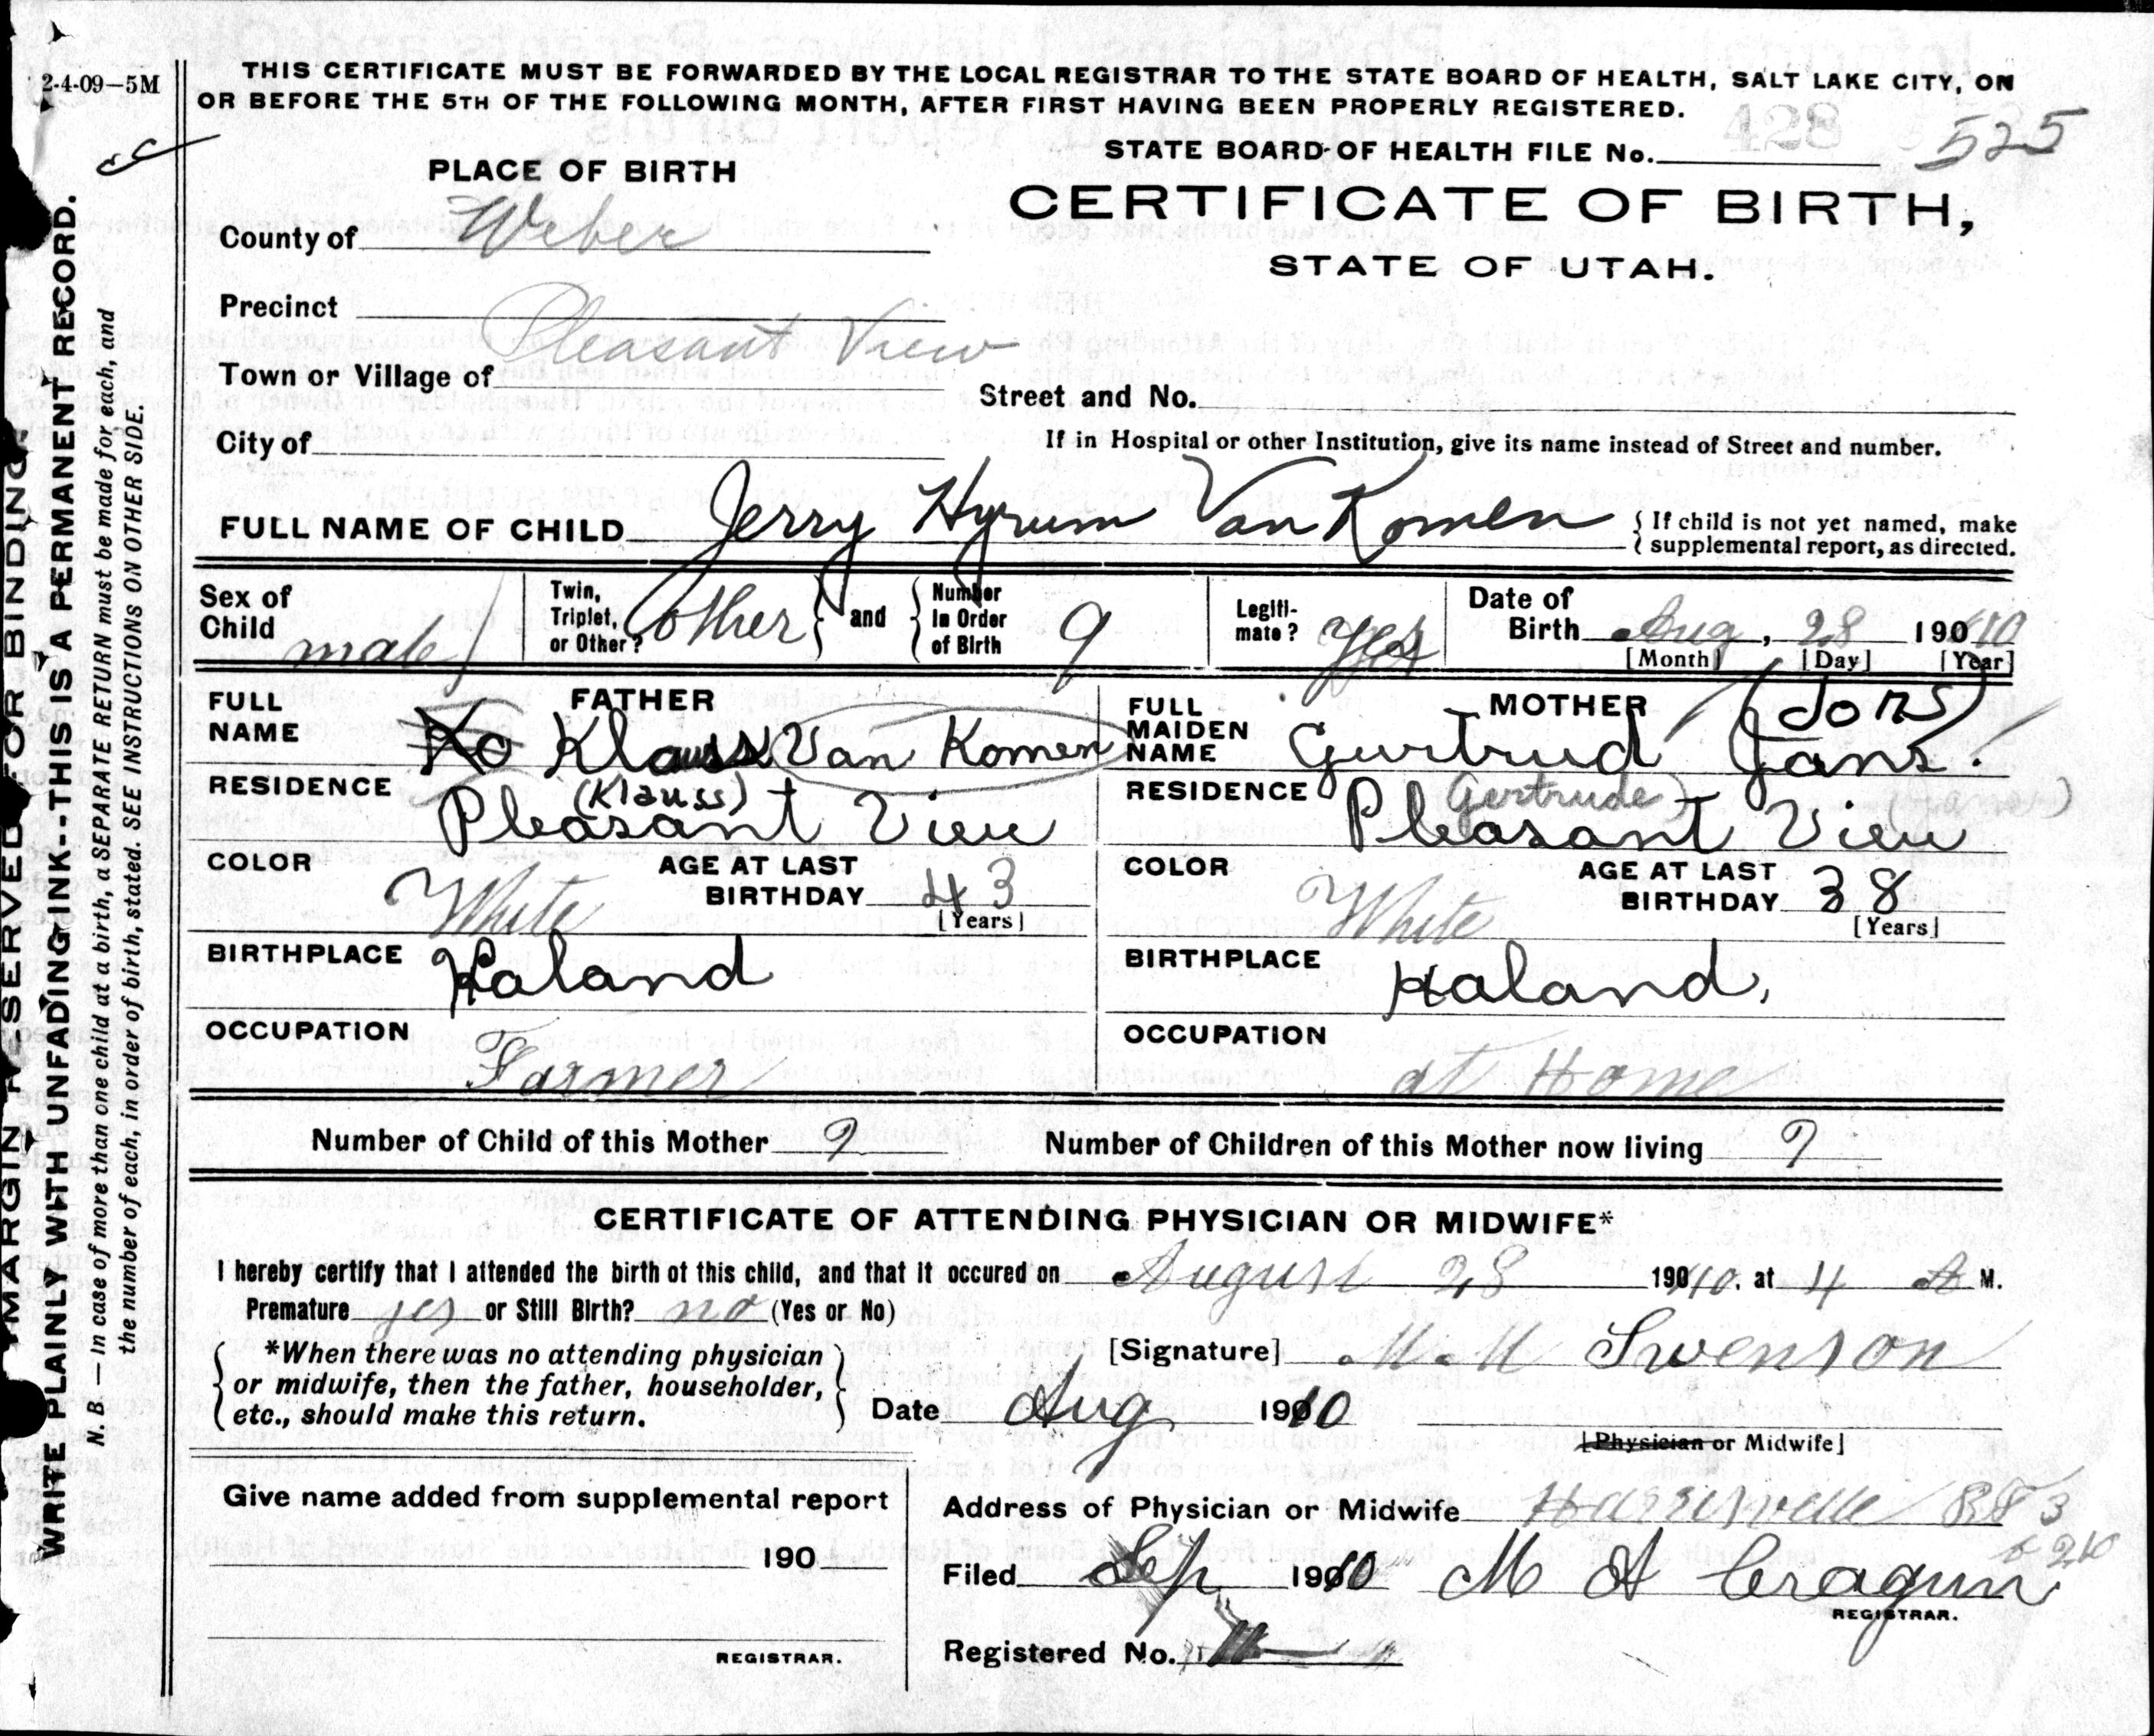 2-4-09—5M
THIS CERTIFICATE MUST BE FORWARDED BY THE LOCAL REGISTRAR TO THE STATE BOARD OF HEALTH, SALT LAKE CITY, ON
OR BEFORE THE 5TH OF THE FOLLOWING MONTH, AFTER FIRST HAVING BEEN PROPERLY REGISTERED.
428 525
STATE BOARD OF HEALTH FILE No.
PLACE OF BIRTH
CERTIFICATE OF BIRTH,
STATE OF UTAH.
County of Weber
Precinct
Pleasant View
Town or Village of
Street and No.
City of
If in Hospital or other Institution, give its name instead of Street and number.
FULL NAME OF CHILD Jerry Hyrum Van Komen
{ If child is not yet named, make
{ supplemental report, as directed.
Sex of Child male
Twin, Triplet, or Other? other } and { Number In Order of Birth 9
Legiti-mate? Yes
Date of Birth Aug, 28 190 10
[Month] [Day] [Year]
FATHER
FULL NAME Klauss Van Komen
(Klauss)
RESIDENCE Pleasant View
COLOR White
AGE AT LAST BIRTHDAY 43
[Years]
BIRTHPLACE Haland
OCCUPATION Farmer
MOTHER
FULL MAIDEN NAME Gurtrud Jans
(Gertrude)
RESIDENCE Pleasant View
COLOR White
AGE AT LAST BIRTHDAY 38
[Years]
BIRTHPLACE Haland,
OCCUPATION at Home
Number of Child of this Mother 9
Number of Children of this Mother now living 9
CERTIFICATE OF ATTENDING PHYSICIAN OR MIDWIFE*
I hereby certify that I attended the birth of this child, and that it occured on August 28 190 10. at 4 A M.
Premature yes or Still Birth? no (Yes or No)
*When there was no attending physician
or midwife, then the father, householder,
etc., should make this return.
[Signature] M. M Swenson
Date Aug 1910
[Physician or Midwife]
Give name added from supplemental report
190
REGISTRAR.
Address of Physician or Midwife Harrisville 3
Filed Sep 1910 M A Cragun
REGISTRAR.
Registered No.
MARGIN RESERVED FOR BINDING
WRITE PLAINLY WITH UNFADING INK--THIS IS A PERMANENT RECORD.
N. B. — In case of more than one child at a birth, a SEPARATE RETURN must be made for each, and
the number of each, in order of birth, stated. SEE INSTRUCTIONS ON OTHER SIDE.